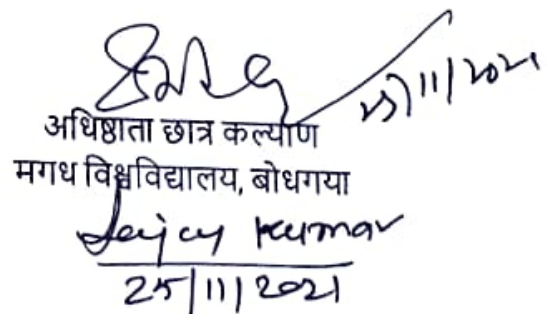 25/11/2021
अधिष्ठाता छात्र कल्याण
मगध विश्वविद्यालय, बोधगया
Kumar
25/11/2021